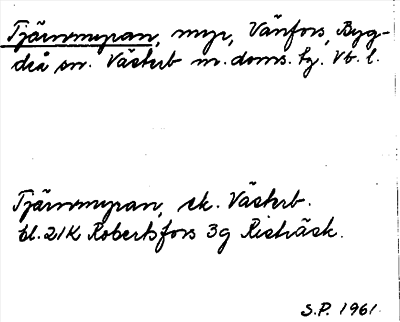 Tjärnmyran, myr, Vänfors, Byg-
deå sn. Västerb m. doms. hg. Vb. l.
Tjärnmyran, ek. Västerb.
bl. 21K Robertsfors 3g Risträsk.
S.P. 1961.